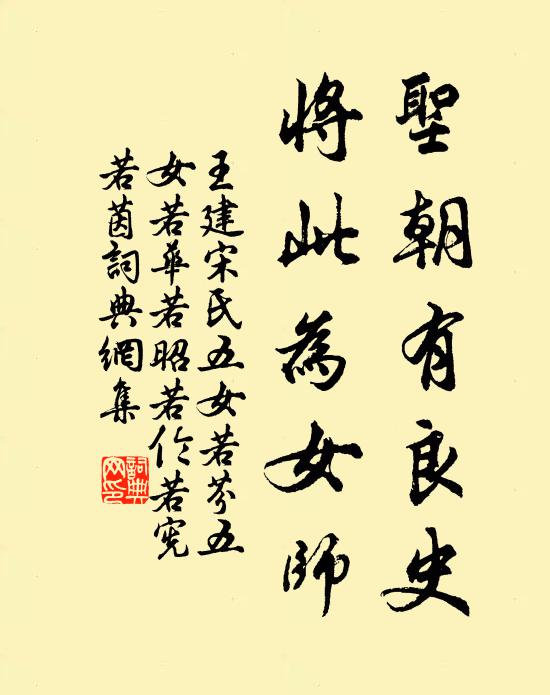 聖朝有良史
將此為女師
王建宋氏五女若芬五
女若華若昭若伦若宪
若茵詞典網集
詞典網印